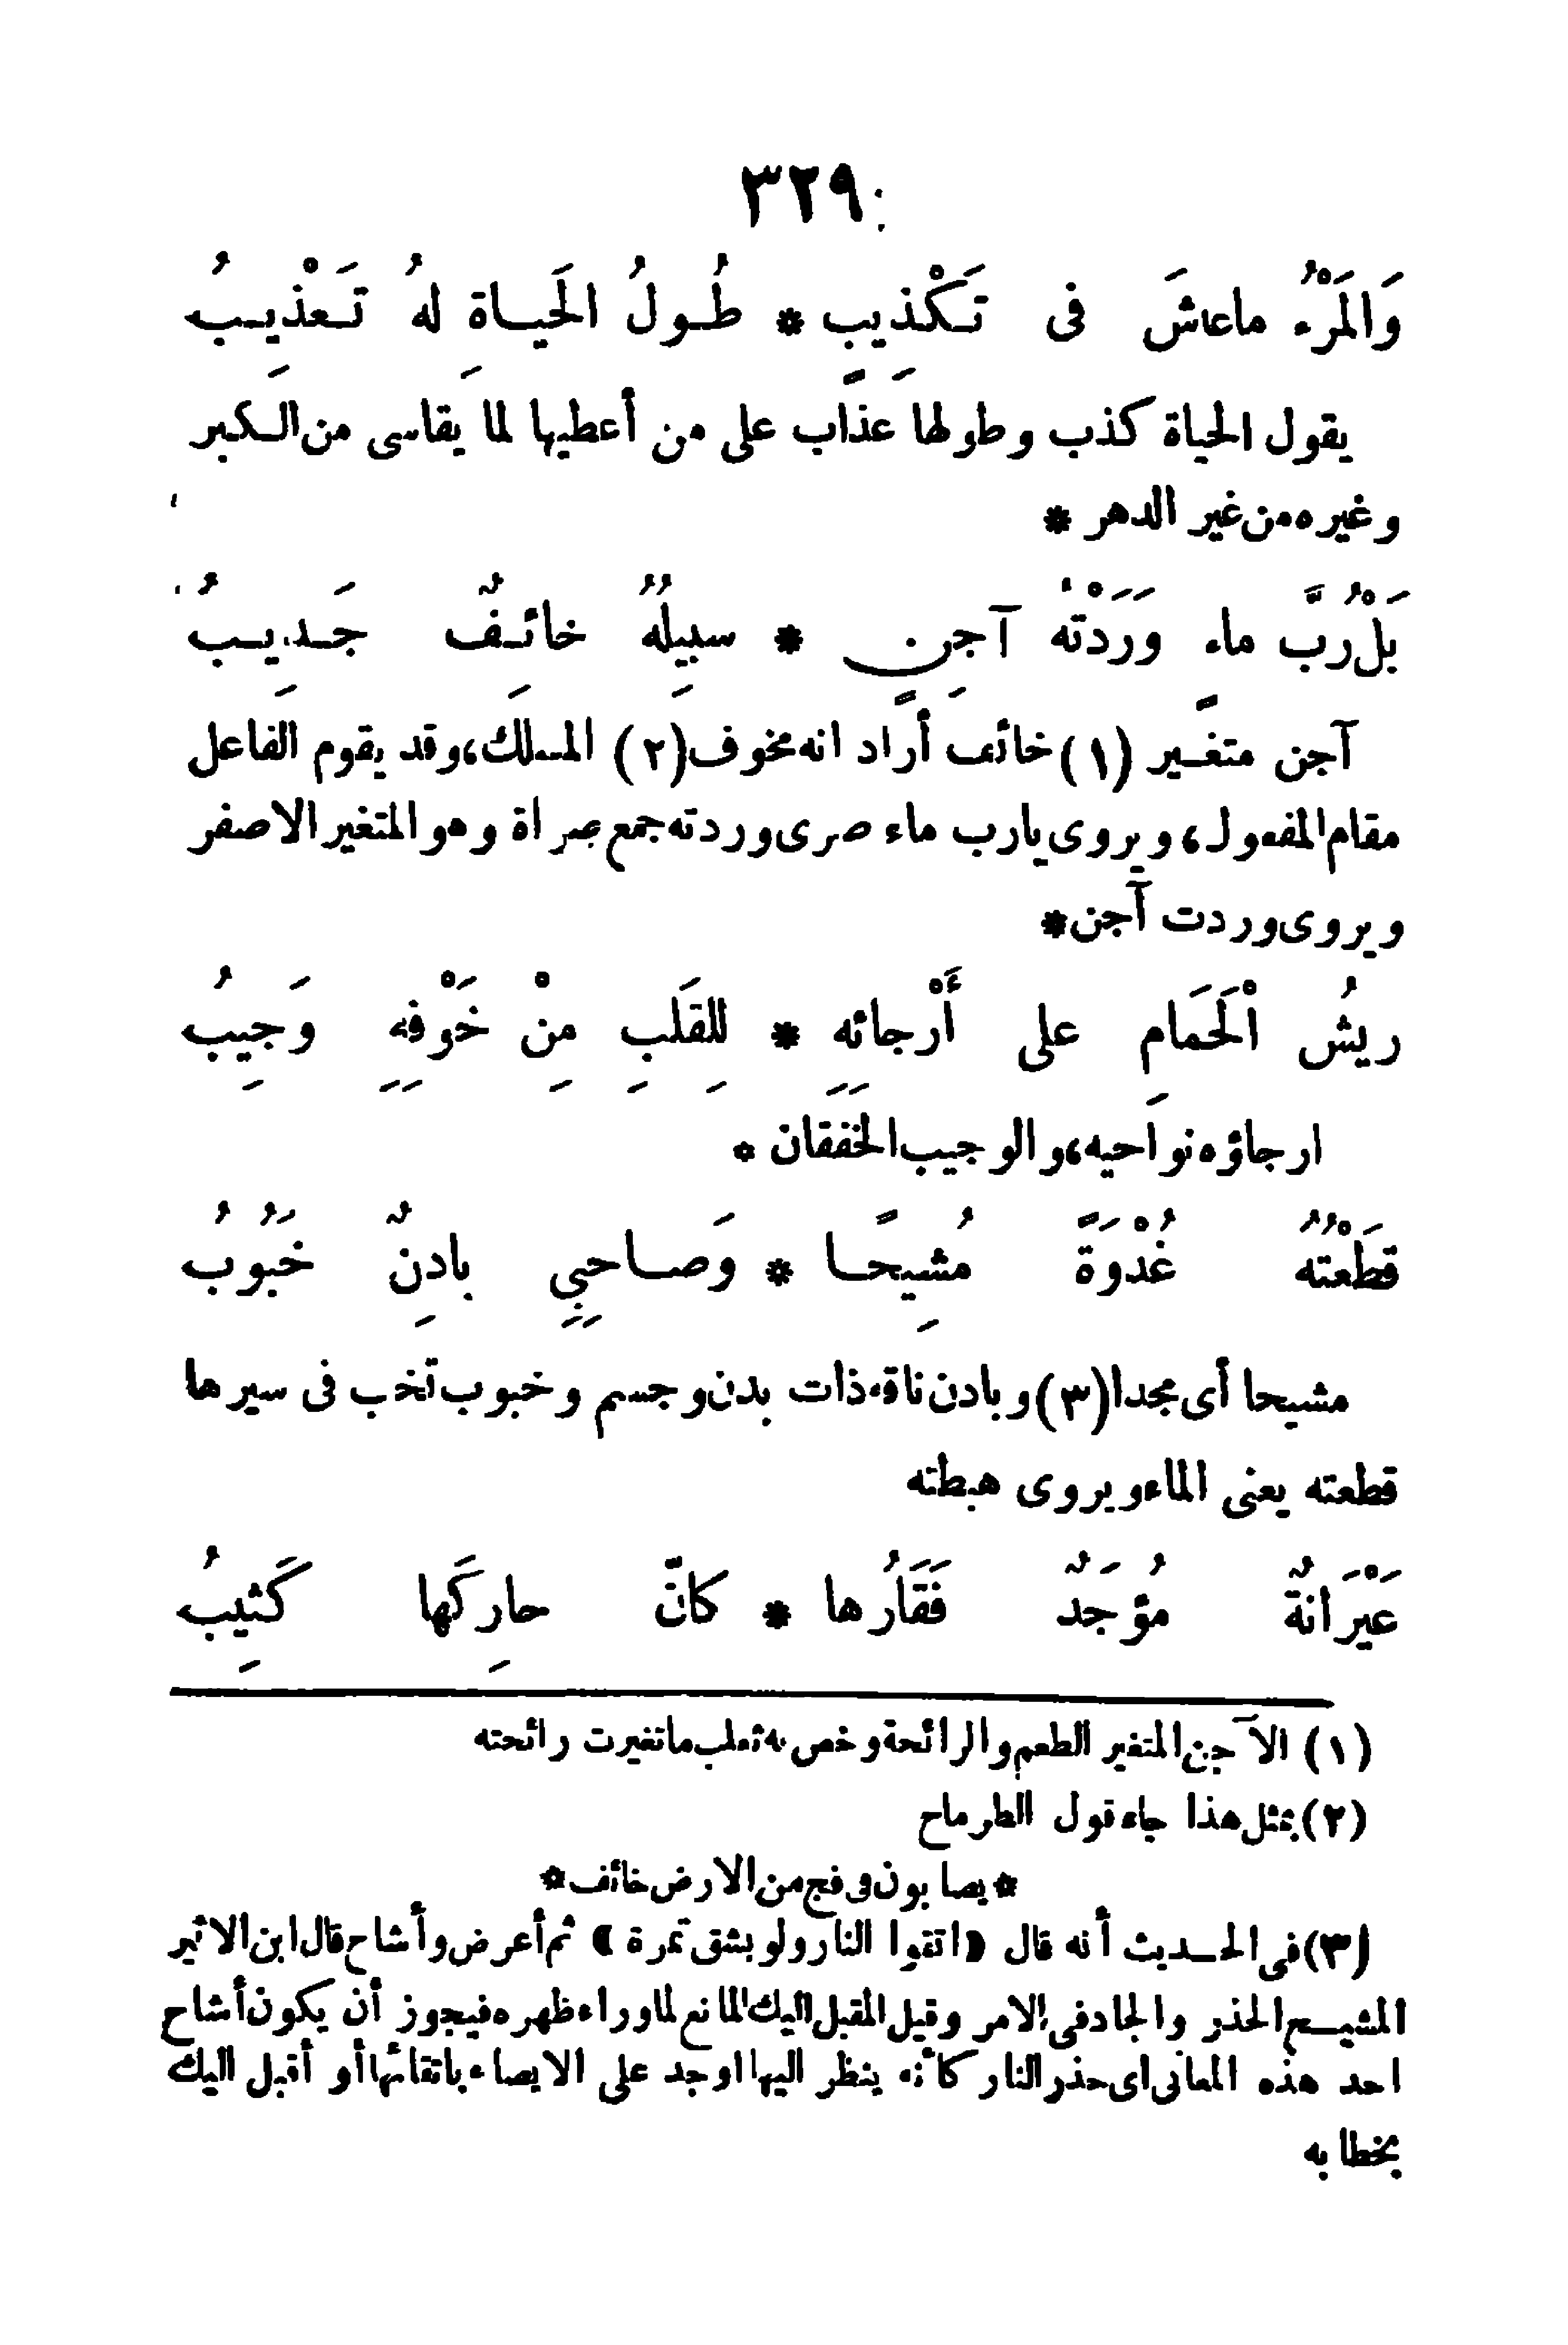 ٣٢٩
وَالمَرْءُ ماعاشَ فى تَكْذِيبٍ * طُولُ الحَيـاةِ لهُ تَعْذِيبُ
يقول الحياة كذب وطولها عذاب على من أعطيها لما يقاسى من الكبر
وغيره من غير الدهر *
بَلْ رُبَّ ماءٍ وَرَدْتُهُ آجِنٍ * سبِيلُهُ خائِفٌ جَدِيبُ
آجن متغير (١) خائف أراد انه مخوف (٢) المسلك، وقد يقوم الفاعل
مقام المفعول، ويروى يارب ماء صرى وردته جمع صراة وهو المتغير الاصفر
ويروى وردت آجن *
ريشُ اْلحَمَامِ على أَرْجائِهِ * لِلقَلبِ مِنْ خَوْفِهِ وَجِيبُ
ارجاؤه نواحيه، والوجيب الخفقان *
قطَعْتُهُ غُدْوَةً مُشِيحًا * وَصاحِبِي بادِنٌ خَبُوبُ
مشيحا أى مجدا (٣) وبادن ناقة ذات بدن وجسم وخبوب تخب فى سيرها
قطعته يعنى الماء ويروى هبطته
عَيْرَانةٌ مُؤجَدٌ فَقَارُها * كانَّ حارِكَها كَثِيبُ
(١) الآجن المتغير الطعم والرائحة وخص به ثعلب ماتغيرت رائحته
(٢) بمثل هذا جاء قول الطرماح
* يصابون فى فج من الارض خائف *
(٣) فى الحديث أنه قال «اتقوا النار ولو بشق تمرة» ثم أعرض وأشاح قال ابن الاثير
المشيح الحذر والجاد فى الامر وقيل المقبل اليك المانع لما وراء ظهره فيجوز أن يكون أشاح
احد هذه المعانى اى حذر النار كأنه ينظر اليها اوجد على الايصاء باتقائها أو أقبل اليك
بخطابه